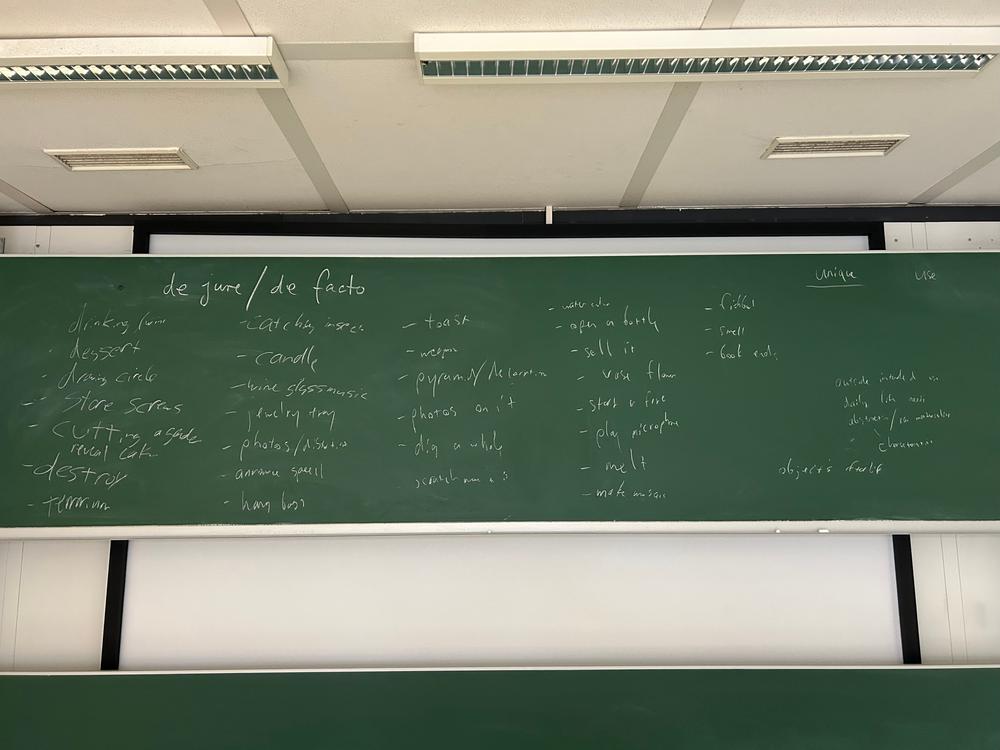 de jure / de facto
drinking / wine
dessert
- drawing circle
- store screws
- cutting a
reveal
- destroy
- terrarium
- catching insects
- candle
- wine glass music
- jewelry tray
- photos /
- announce speech
- hang
- toast
- weapon
- pyramid / decoration
- photos on it
- dig a whole
- scratch
- water color
- open a bottle
- sell it
- vase flower
- start a fire
- play microphone
- melt
- make mosaic
- fishbowl
- smell
- book ends
unique
use
outside intended use
daily life
objects